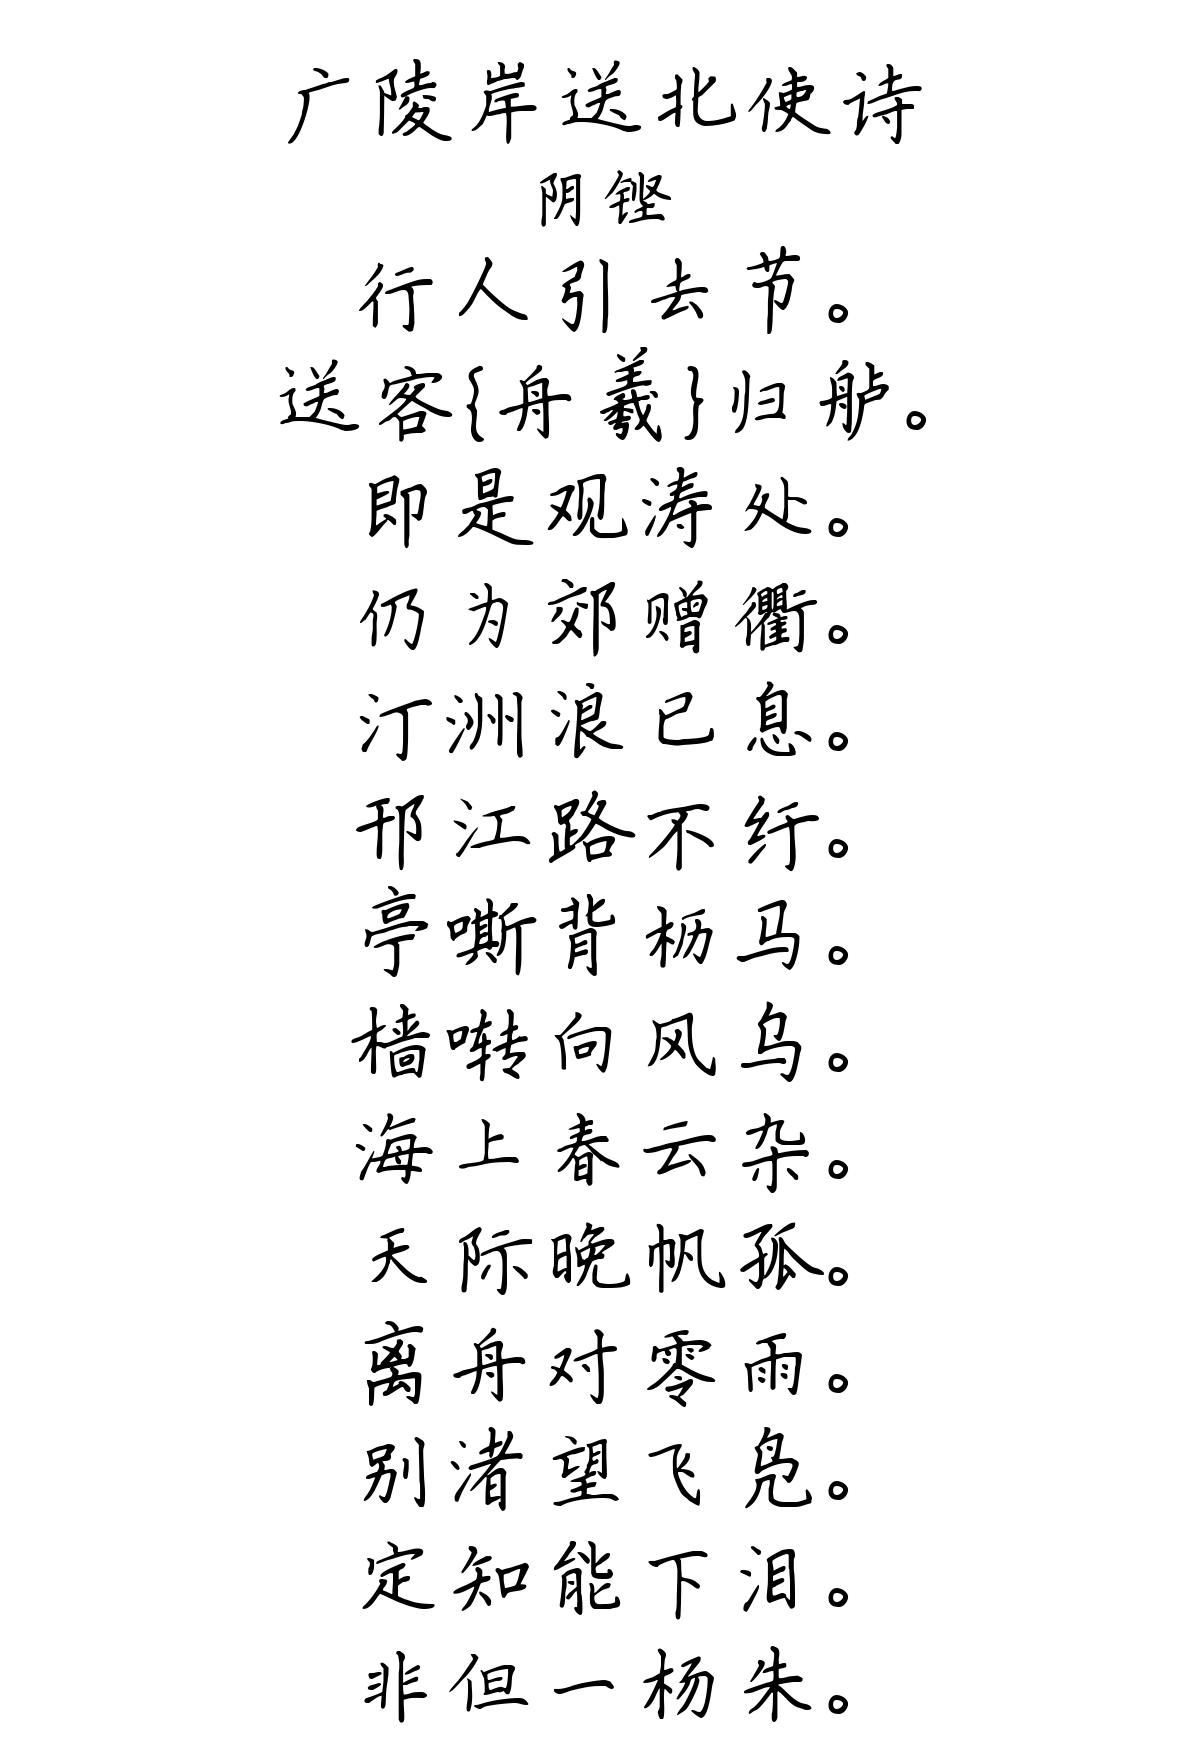 广陵岸送北使诗
阴铿
行人引去节。
送客{舟羲}归舻。
即是观涛处。
仍为郊赠衢。
汀洲浪已息。
邗江路不纡。
亭嘶背枥马。
樯啭向风乌。
海上春云杂。
天际晚帆孤。
离舟对零雨。
别渚望飞凫。
定知能下泪。
非但一杨朱。